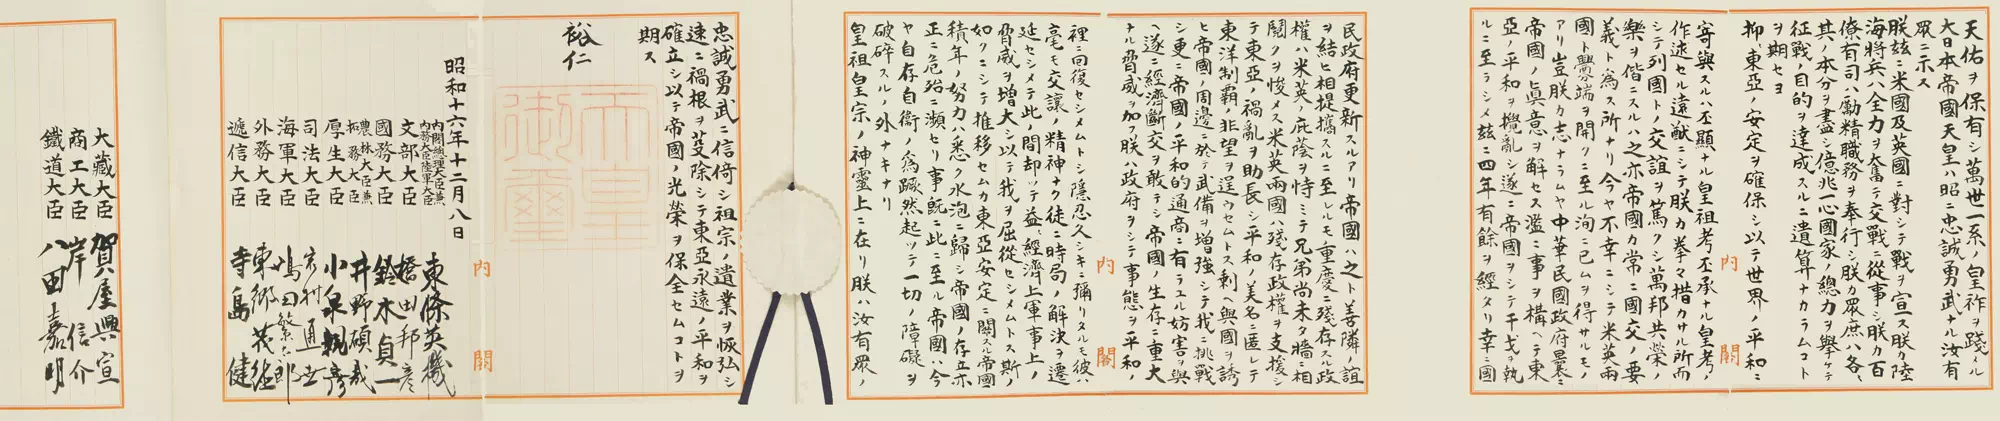 天佑ヲ保有シ萬世一系ノ皇祚ヲ踐メル
大日本帝國天皇ハ昭ニ忠誠勇武ナル汝有
眾ニ示ス
朕玆ニ米國及英國ニ對シテ戰ヲ宣ス朕カ陸
海將兵ハ全力ヲ奮テ交戰ニ從事シ朕カ百
僚有司ハ勵精職務ヲ奉行シ朕カ眾庶ハ各〻
其ノ本分ヲ盡シ億兆一心國家ノ總力ヲ擧ケテ
征戰ノ目的ヲ達成スルニ遺算ナカラムコト
ヲ期セヨ
抑〻東亞ノ安定ヲ確保シ以テ世界ノ平和ニ
寄與スルハ丕顯ナル皇祖考丕承ナル皇考ノ
作述セル遠猷ニシテ朕カ拳々措カサル所而
シテ列國トノ交誼ヲ篤クシ萬邦共榮ノ
樂ヲ偕ニスルハ之亦帝國カ常ニ國交ノ要
義ト爲ス所ナリ今ヤ不幸ニシテ米英兩
國ト釁端ヲ開クニ至ル洵ニ已ムヲ得サルモノ
アリ豈朕カ志ナラムヤ中華民國政府曩ニ
帝國ノ眞意ヲ解セス濫ニ事ヲ構ヘテ東
亞ノ平和ヲ攪亂シ遂ニ帝國ヲシテ干戈ヲ執
ルニ至ラシメ玆ニ四年有餘ヲ經タリ幸ニ國
民政府更新スルアリ帝國ハ之ト善隣ノ誼
ヲ結ヒ相提攜スルニ至レルモ重慶ニ殘存スル政
權ハ米英ノ庇蔭ヲ恃ミテ兄弟尚未タ牆ニ相
鬩クヲ悛メス米英兩國ハ殘存政權ヲ支援シ
テ東亞ノ禍亂ヲ助長シ平和ノ美名ニ匿レテ
東洋制覇ノ非望ヲ逞ウセムトス剩ヘ與國ヲ誘
ヒ帝國ノ周邊ニ於テ武備ヲ增強シテ我ニ挑戰
シ更ニ帝國ノ平和的通商ニ有ラユル妨害ヲ與
ヘ遂ニ經濟斷交ヲ敢テシ帝國ノ生存ニ重大
ナル脅威ヲ加フ朕ハ政府ヲシテ事態ヲ平和ノ
裡ニ囘復セシメムトシ隱忍久シキニ彌リタルモ彼ハ
毫モ交讓ノ精神ナク徒ニ時局ノ解決ヲ遷
延セシメテ此ノ間却ツテ益〻經濟上軍事上ノ
脅威ヲ增大シ以テ我ヲ屈從セシメムトス斯ノ
如クニシテ推移セムカ東亞安定ニ關スル帝國
積年ノ努力ハ悉ク水泡ニ歸シ帝國ノ存立亦
正ニ危殆ニ瀕セリ事旣ニ此ニ至ル帝國ハ今
ヤ自存自衞ノ爲蹶然起ツテ一切ノ障礙ヲ
破碎スルノ外ナキナリ
皇祖皇宗ノ神靈上ニ在リ朕ハ汝有眾ノ
忠誠勇武ニ信倚シ祖宗ノ遺業ヲ恢弘シ
速ニ禍根ヲ芟除シテ東亞永遠ノ平和ヲ
確立シ以テ帝國ノ光榮ヲ保全セムコトヲ
期ス
裕仁
天皇
御璽
昭和十六年十二月八日
內閣總理大臣兼
內務大臣陸軍大臣 東條英機
文部大臣 橋田邦彥
國務大臣 鈴木貞一
農林大臣兼
拓務大臣 井野碩哉
厚生大臣 小泉親彥
司法大臣 岩村通世
海軍大臣 嶋田繁太郎
外務大臣 東鄉茂德
遞信大臣 寺島健
大藏大臣 賀屋興宣
商工大臣 岸信介
鐵道大臣 八田嘉明
內閣
內閣
內閣